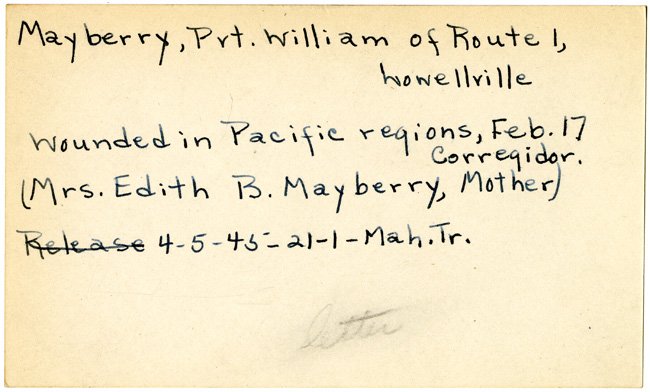 Mayberry, Pvt. William of Route 1,
Lowellville
Wounded in Pacific regions, Feb. 17
Corregidor.
(Mrs. Edith B. Mayberry, Mother)
Release 4-5-45-21-1-Mah.Tr.
letter